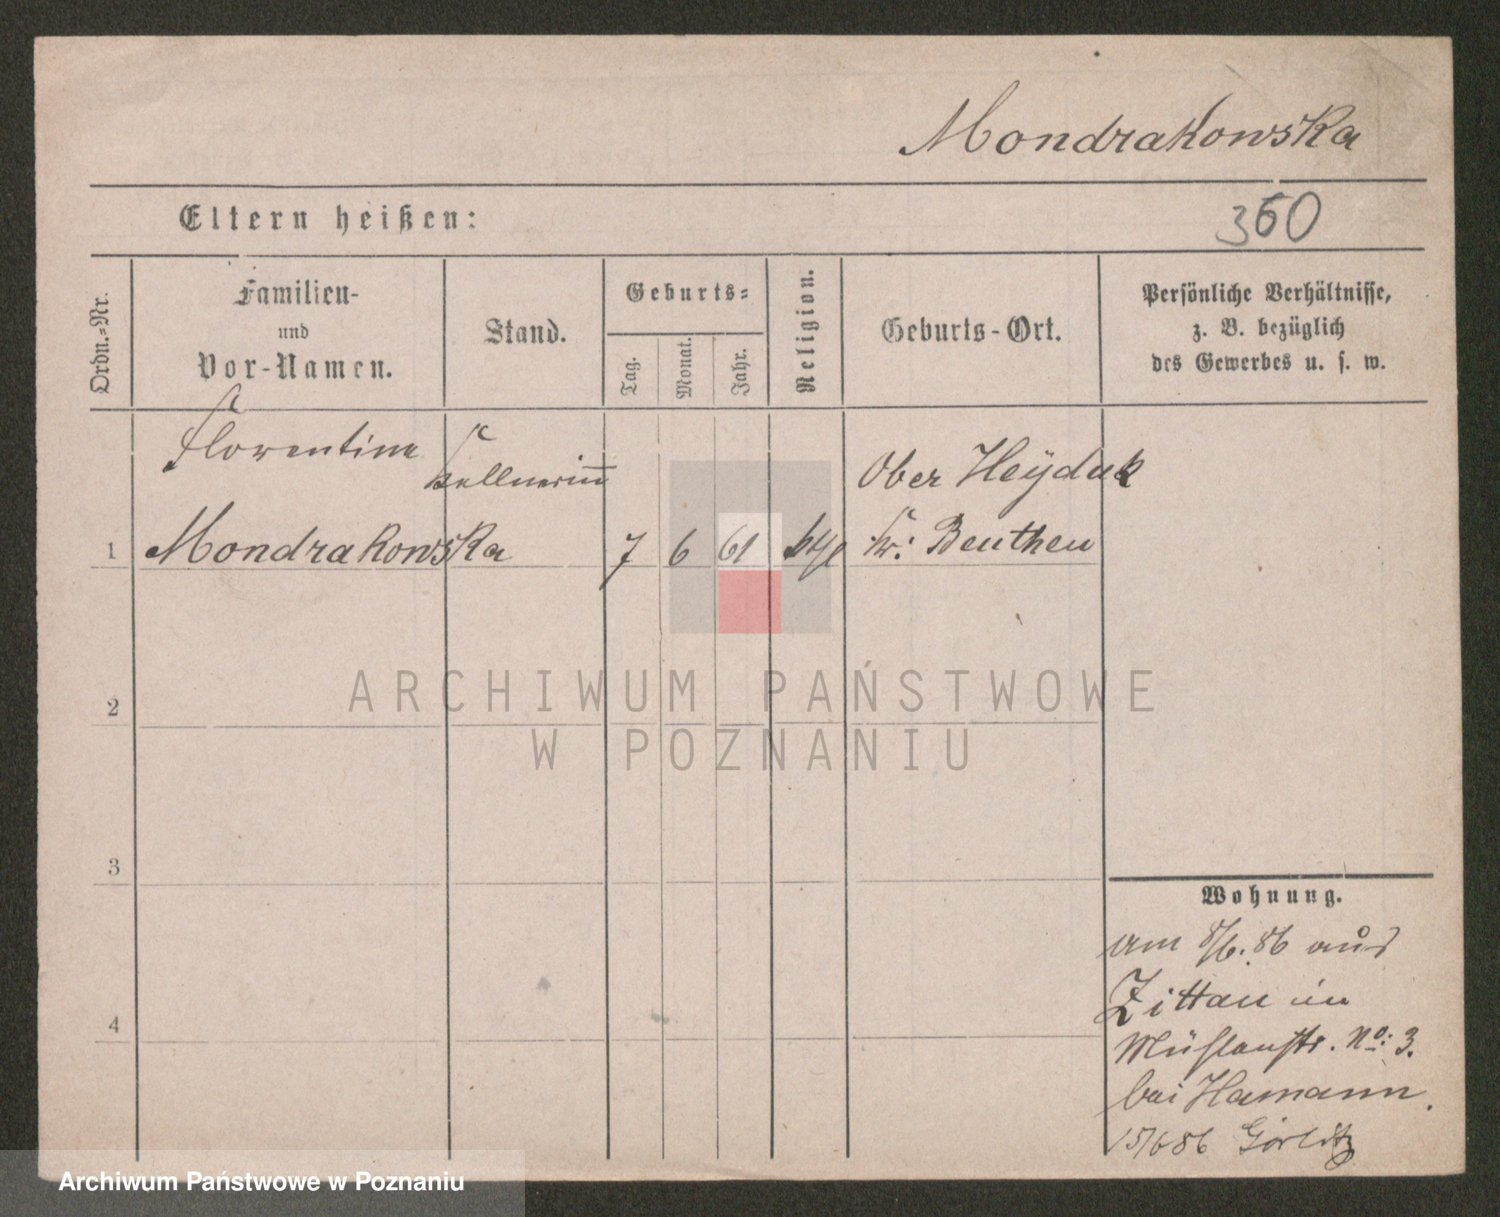 Mondrakowska
Eltern heißen:
360
Ordn.-Nr.
Familien-
und
Vor-Namen.
Stand.
Geburts-
Tag.
Monat.
Jahr.
Religion.
Geburts-Ort.
Persönliche Verhältnisse,
z. B. bezüglich
des Gewerbes u. s. w.
Florentine
Kellnerin
Ober Heyduk
1
Mondrakowska
7
6
61
Kr. Beuthen
2
ARCHIWUM PAŃSTWOWE
W POZNANIU
3
4
Wohnung.
am 8/6. 86 aus
Zittau in
Mühlenstr. No: 3.
bei Hamann.
15/6 86 Görlitz
Archiwum Państwowe w Poznaniu